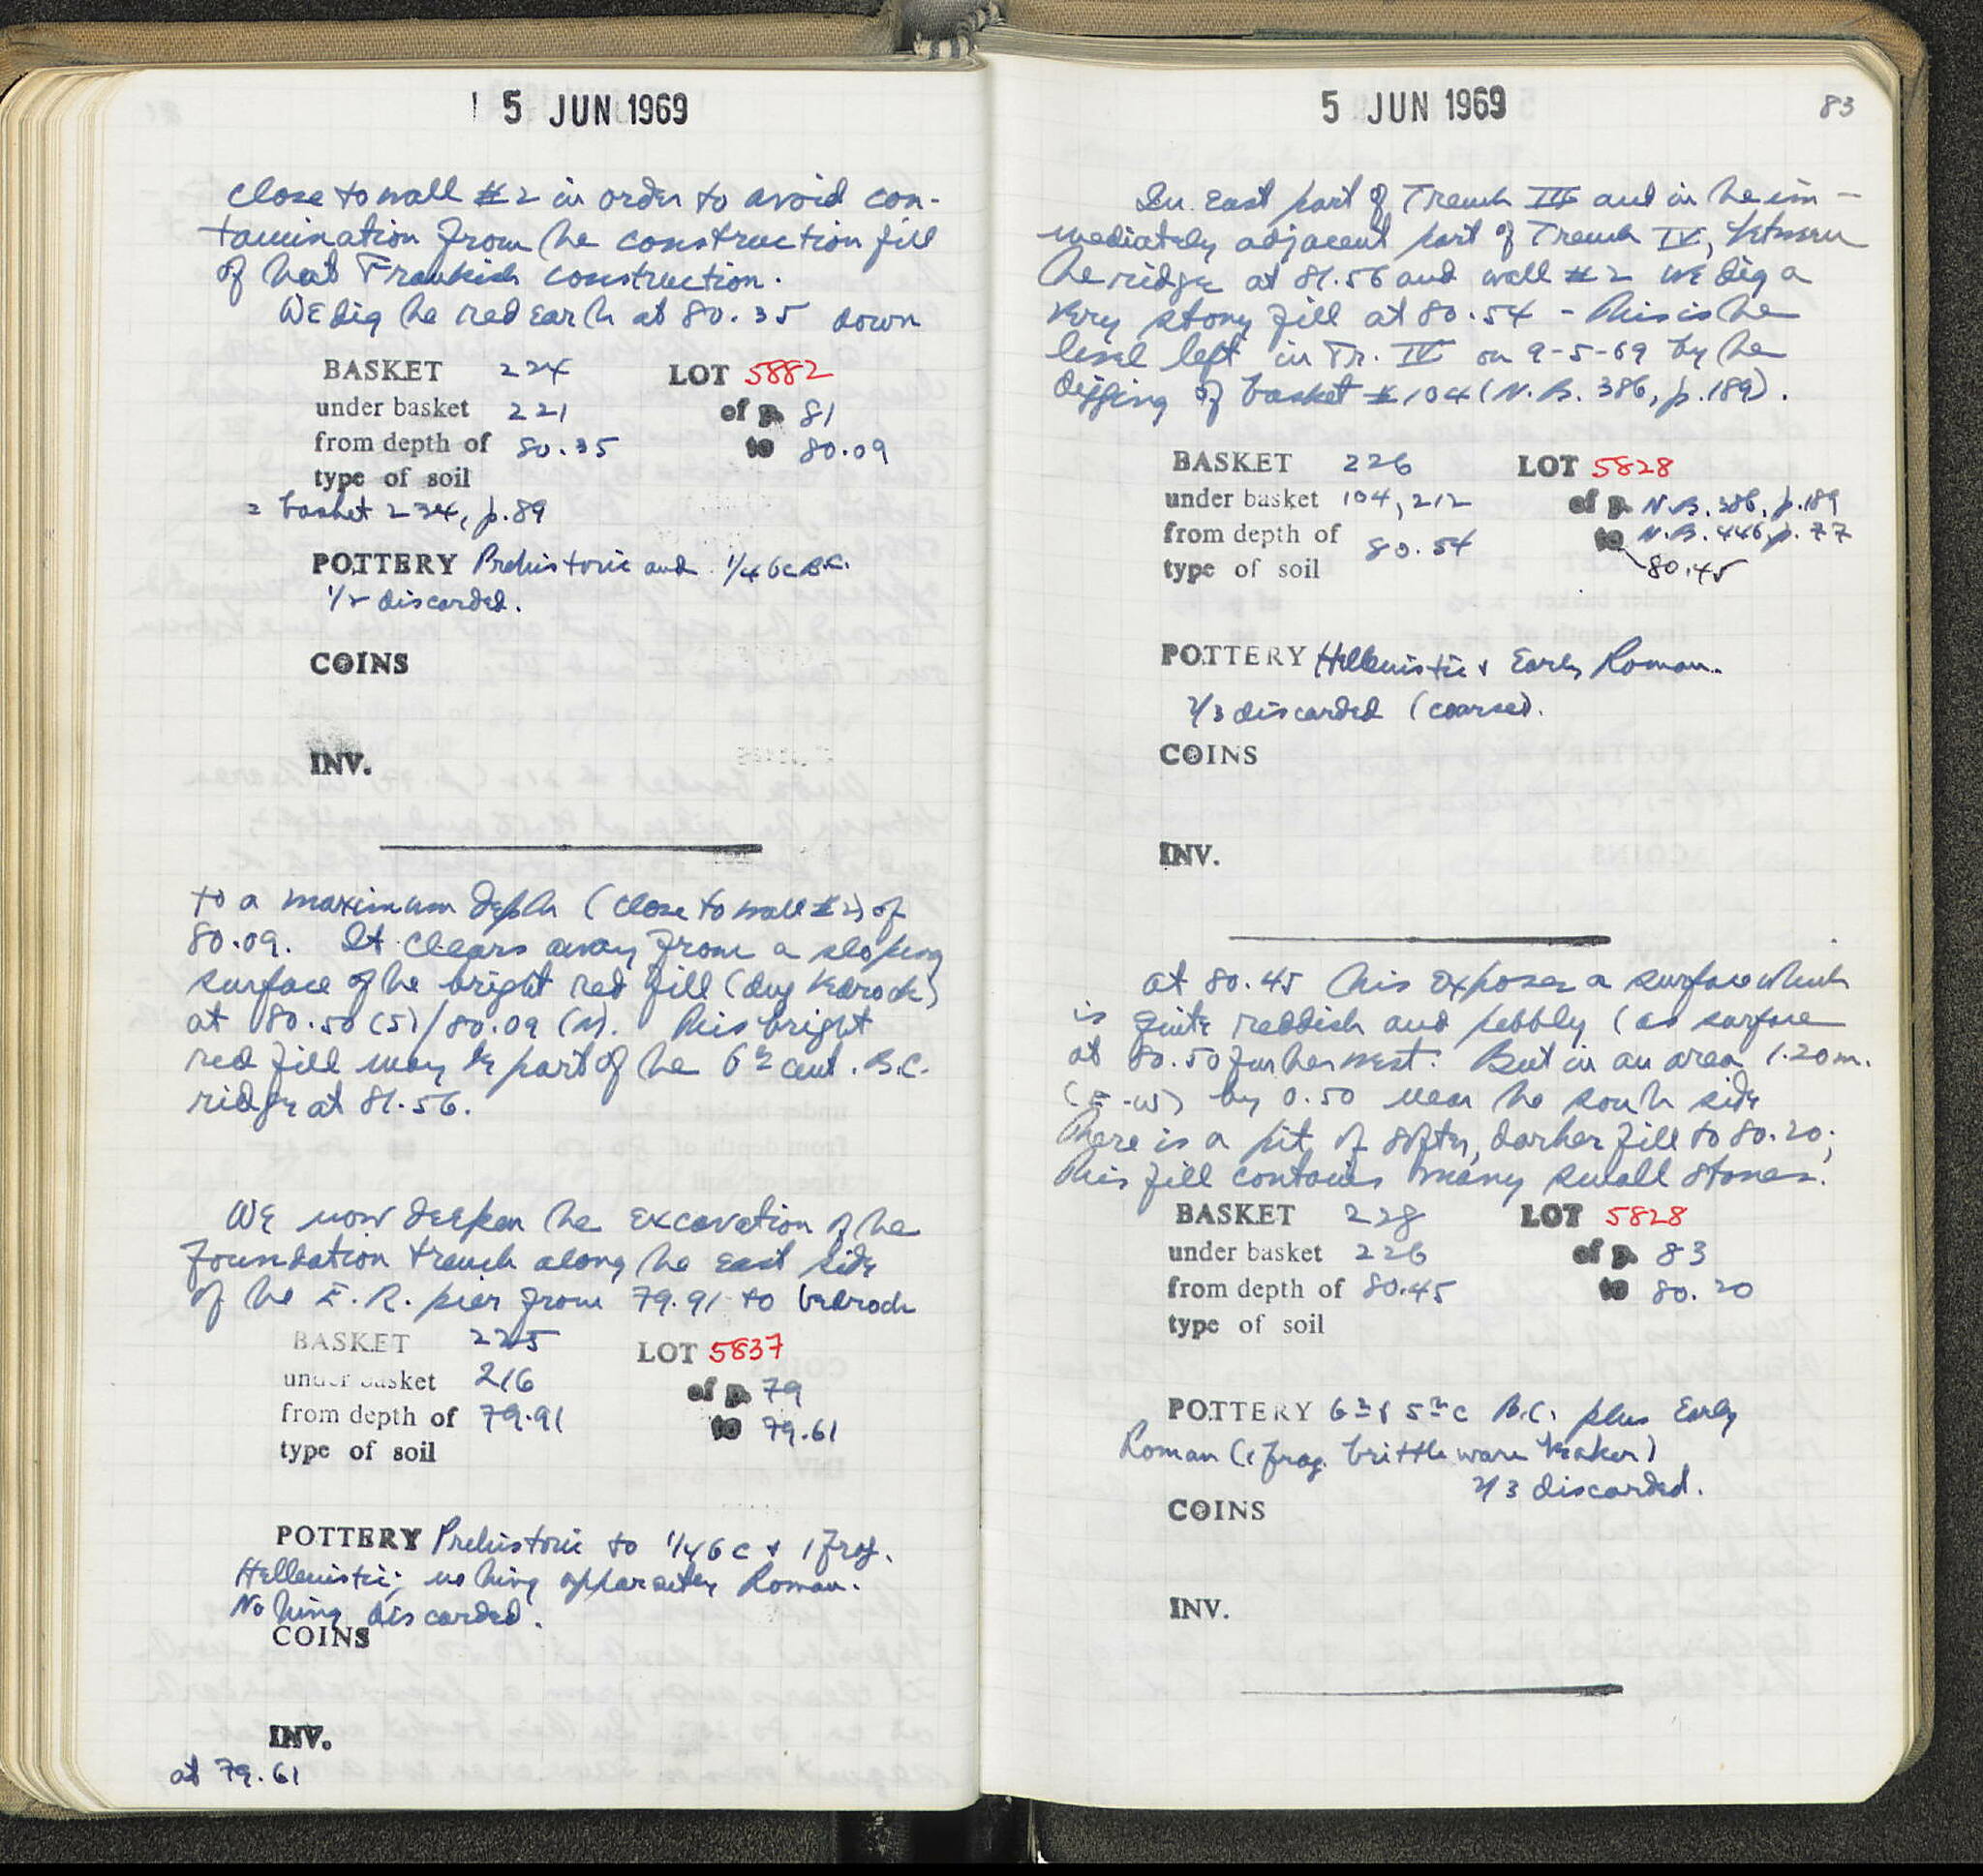 5 JUN 1969
close to wall #2 in order to avoid con-
tamination from the construction fill
of that Frankish construction.
We dig the red earth at 80.35 down
BASKET 224 LOT 5882
under basket 221 of p. 81
from depth of 80.35 to 80.09
type of soil
= basket 234, p. 89
POTTERY Prehistoric and 1/4 6c B.C.
1/2 discarded.
COINS
INV.
to a maximum depth (close to wall #2) of
80.09. It clears away from a sloping
surface of the bright red fill (dug bedrock)
at 80.50 (S)/80.09 (N). This bright
red fill may be part of the 6th cent. B.C.
ridge at 81.56.
We now deepen the excavation of the
foundation trench along the east side
of the E.R. pier from 79.91 to bedrock
BASKET 225 LOT 5837
under basket 216 of p. 79
from depth of 79.91 to 79.61
type of soil
POTTERY Prehistoric to 1/4 6 c + 1 frag.
Hellenistic; nothing apparently Roman.
Nothing discarded.
COINS
INV.
at 79.61
5 JUN 1969
83
In East part of Trench III and in the im-
mediately adjacent part of Trench IV, between
the ridge at 81.56 and wall #2 we dig a
very stony fill at 80.54 - this is the
level left in Tr. IV on 9-5-69 by the
digging of basket #104 (N.B. 386, p. 189).
BASKET 226 LOT 5828
under basket 104, 212 of p. N.B. 386, p. 189
from depth of 80.54 to N.B. 446, p. 77
type of soil 80.45
POTTERY Hellenistic & Early Roman.
2/3 discarded (coarse).
COINS
INV.
at 80.45 this exposes a surface which
is quite reddish and pebbly (as surface
at 80.50 further west. But in an area 1.20 m.
(E-W) by 0.50 near the south side
there is a pit of softer, darker fill to 80.20;
this fill contains many small stones.
BASKET 228 LOT 5828
under basket 226 of p. 83
from depth of 80.45 to 80.20
type of soil
POTTERY 6th & 5th c B.C. plus Early
Roman (1 frag. brittle ware beaker)
2/3 discarded.
COINS
INV.